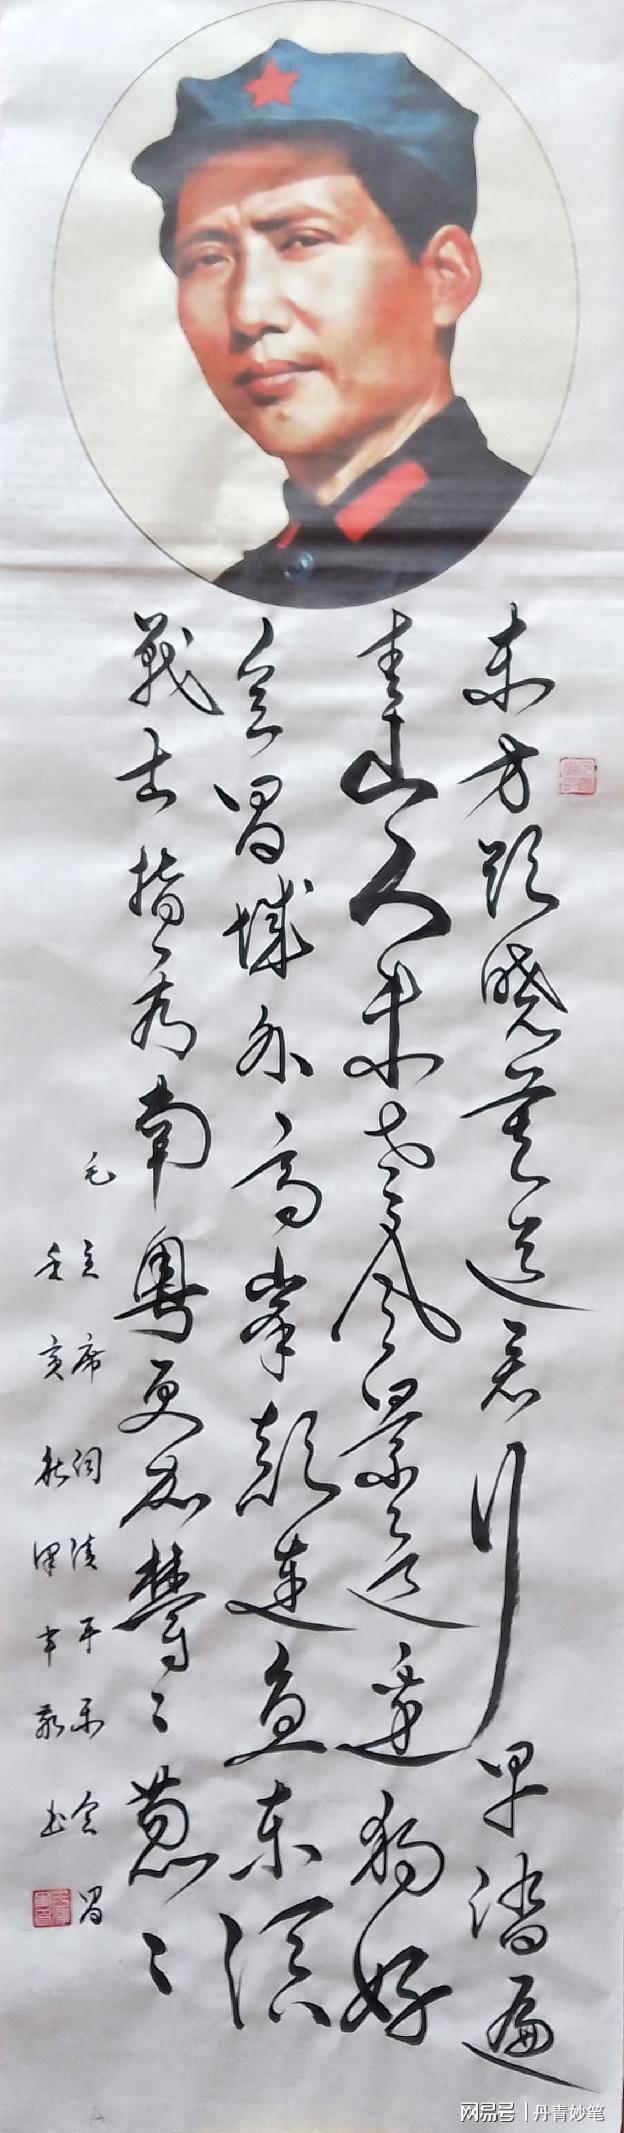 东方欲晓莫道君行早踏遍
青山人未老风景这边独好
会昌城外高峰颠连直东溟
戰士指看南粤更加郁〻葱〻
毛主席词清平乐会昌
亥秋 敬书
网易号 | 丹青妙笔